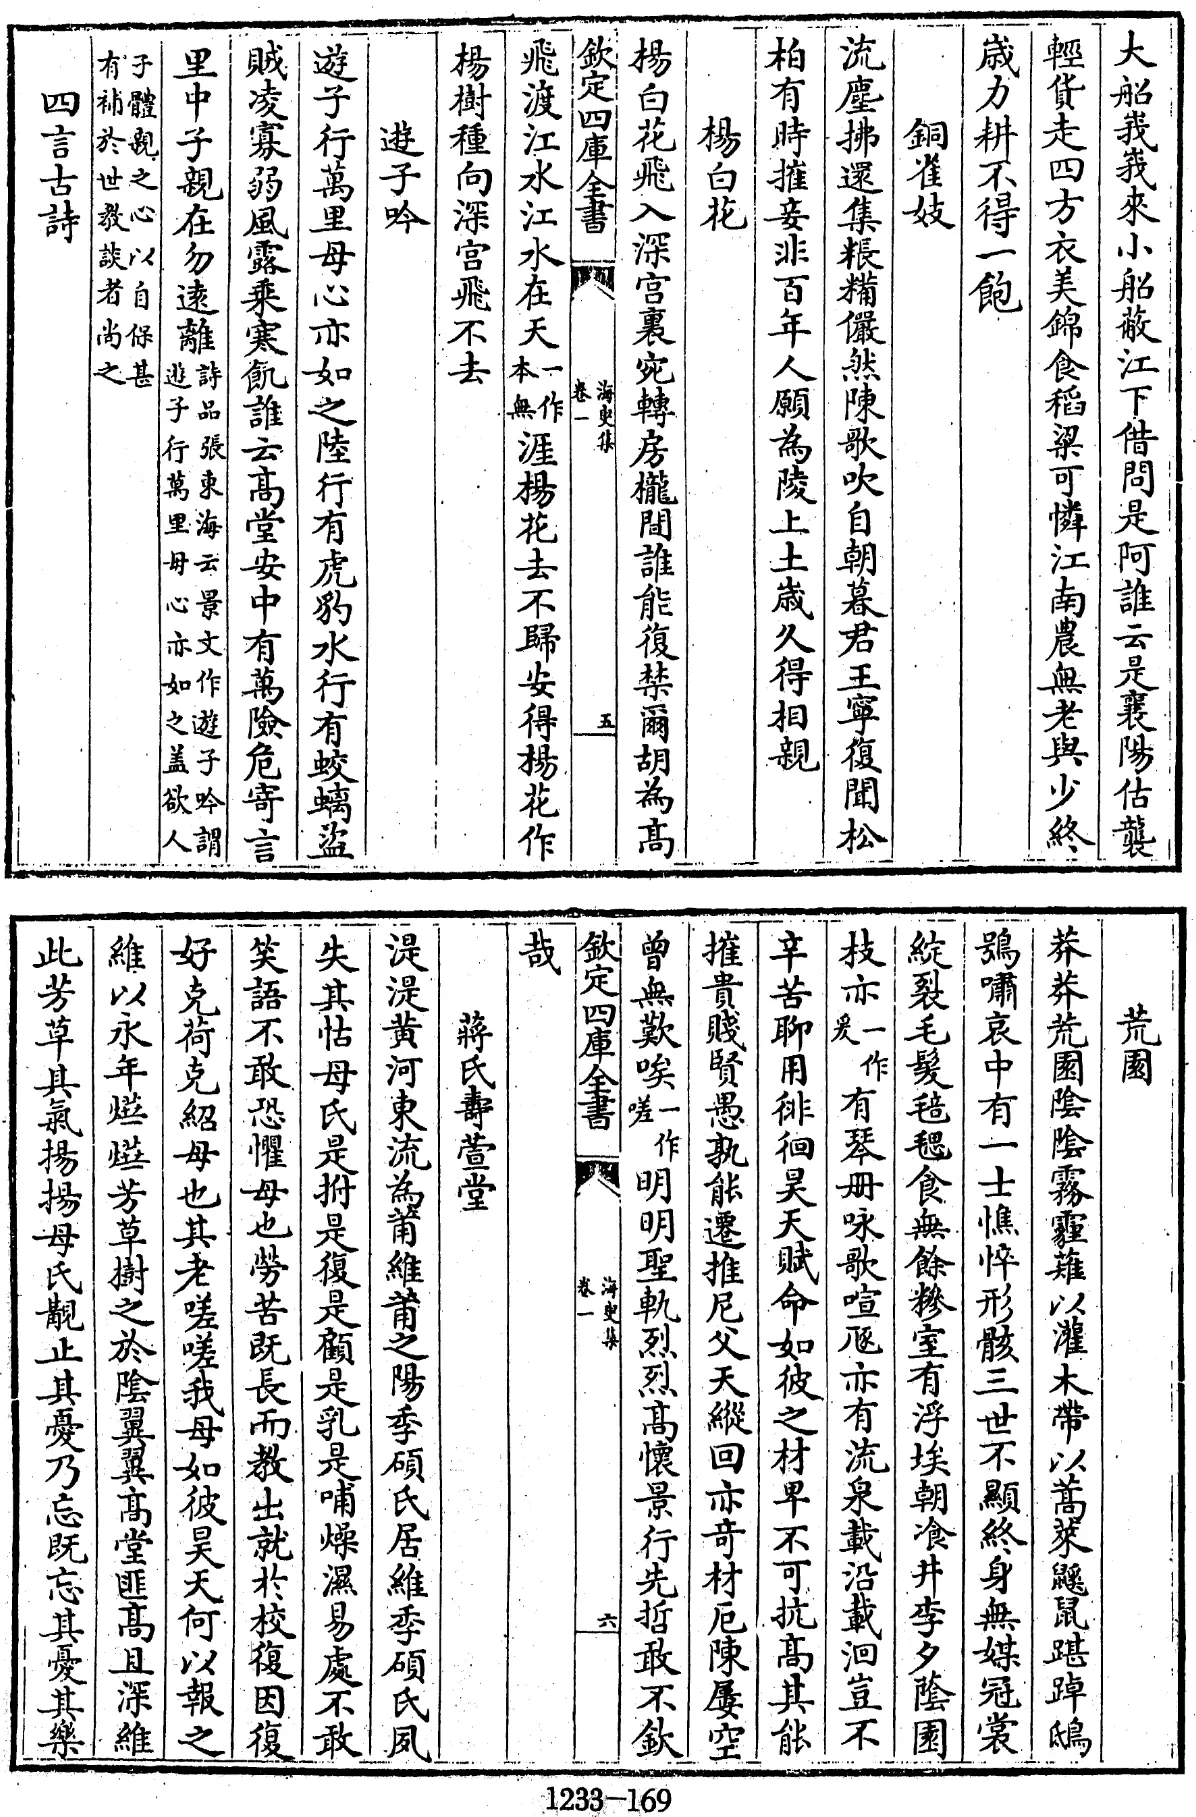 大船峩峩來小船蔽江下借問是阿誰云是襄陽估襲
輕貨走四方衣美錦食稻粱可憐江南農無老與少終
歲力耕不得一飽
銅雀妓
流塵拂還集粻糒儼然陳歌吹自朝暮君王寧復聞松
柏有時摧妾非百年人願為陵上土歲久得相親
楊白花
楊白花飛入深宫裏宛轉房櫳間誰能復禁爾胡為髙
欽定四庫全書
海叟集
卷一
五
飛渡江水江水在天一作本無涯楊花去不歸安得楊花作
楊樹種向深宫飛不去
遊子吟
遊子行萬里母心亦如之陸行有虎豹水行有蛟螭盜
賊凌寡弱風露乘寒飢誰云髙堂安中有萬險危寄言
里中子親在勿逺離詩品張東海云景文作遊子吟謂遊子行萬里母心亦如之盖欲人
子體親之心以自保甚有補於世教談者尚之
四言古詩
荒園
莽莽荒園陰陰霧霾薙以灌木帶以蒿萊鼷鼠踸踔鴟
鴞嘯哀中有一士憔悴形骸三世不顯終身無媒冠裳
綻裂毛髮毰毸食無餘糝室有浮埃朝飡井李夕陰園
枝亦一作爰有琴册咏歌喧豗亦有流泉載沿載洄豈不
辛苦聊用徘徊昊天賦命如彼之材卑不可抗髙其能
摧貴賤賢愚孰能遷推尼父天縱回亦竒材厄陳屢空
曾無歎唉一作嗟明明聖軌烈烈髙懷景行先哲敢不欽
欽定四庫全書
海叟集
卷一
六
哉
蔣氏壽萱堂
湜湜黄河東流為莆維莆之陽季碩氏居維季碩氏夙
失其怙母氏是拊是復是顧是乳是哺燥濕易處不敢
笑語不敢恐懼母也勞苦既長而教出就於校復因復
好克荷克紹母也其老嗟嗟我母如彼昊天何以報之
維以永年㷸㷸芳草樹之於陰翼翼髙堂匪髙且深維
此芳草具氣揚揚母氏覯止其憂乃忘既忘其憂其樂
1233-169